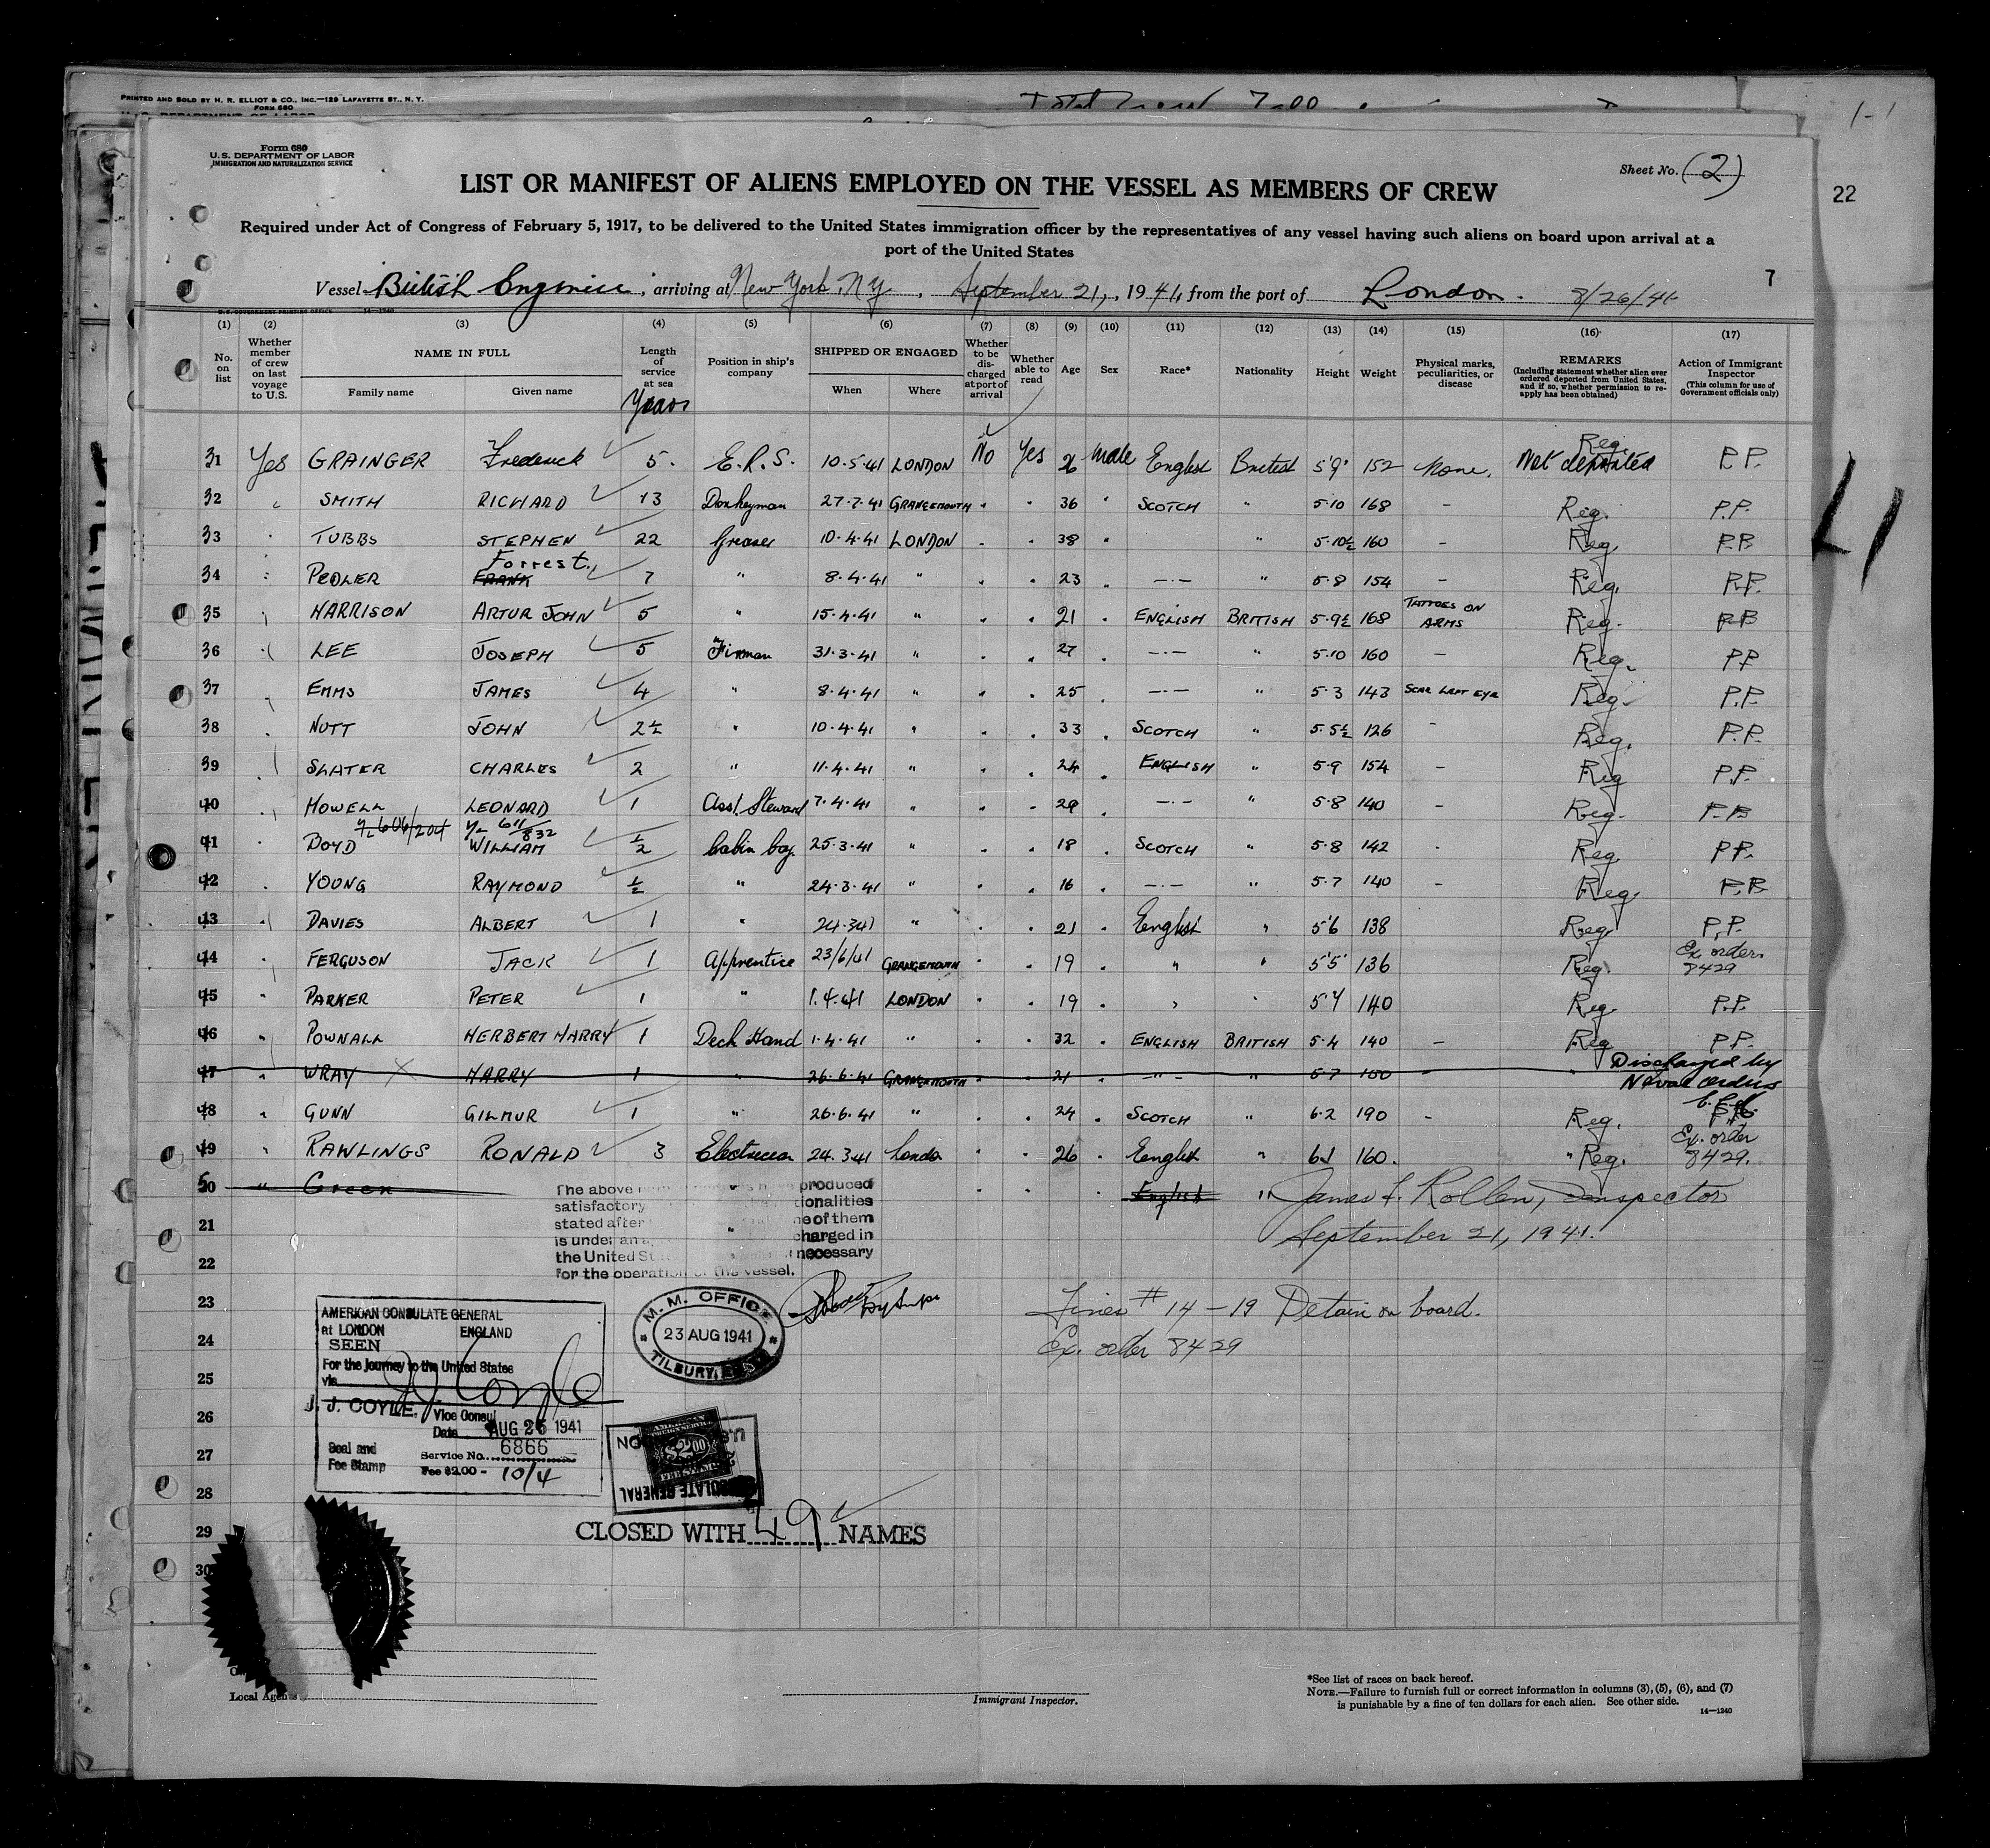 PRINTED AND SOLD BY H. R. ELLIOT & CO., INC.—129 LAFAYETTE ST., N. Y.
FORM 680
Form 680
U. S. DEPARTMENT OF LABOR
IMMIGRATION AND NATURALIZATION SERVICE
Sheet No. (2)
22
LIST OR MANIFEST OF ALIENS EMPLOYED ON THE VESSEL AS MEMBERS OF CREW
Required under Act of Congress of February 5, 1917, to be delivered to the United States immigration officer by the representatives of any vessel having such aliens on board upon arrival at a
port of the United States
7
Vessel British, arriving at New York, N.Y., September 21, 1941, from the port of London. 8/26/41
U.S. GOVERNMENT PRINTING OFFICE 14—1240
(1) (2) (3) (4) (5) (6) (7) (8) (9) (10) (11) (12) (13) (14) (15) (16) (17)
No. on list
Whether member of crew on last voyage to U.S.
NAME IN FULL
Family name Given name
Length of service at sea
Years
Position in ship's company
SHIPPED OR ENGAGED
When Where
Whether to be discharged at port of arrival
Whether able to read
Age Sex Race* Nationality Height Weight
Physical marks, peculiarities, or disease
REMARKS
(Including statement whether alien ever ordered deported from United States, and if so, whether permission to reapply has been obtained)
Action of Immigrant Inspector
(This column for use of Government officials only)
31 Yes GRAINGER Frederick 5. E.R.S. 10.5.41 LONDON No Yes 26 male English British 5'9" 152 None. Reg. Not deported P.P.
32 SMITH RICHARD 13 Donkeyman 27.7.41 GRANGEMOUTH " " 36 " SCOTCH " 5.10 168 – Reg. P.P.
33 TUBBS STEPHEN 22 Greaser 10.4.41 LONDON " " 38 " " 5.10½ 160 – Reg. P.P.
34 PEDLER FRANK Forrest 7 " 8.4.41 " " " 23 " —.— " 5.8 154 – Reg. P.P.
35 HARRISON ARTUR JOHN 5 " 15.4.41 " " " 21 " ENGLISH BRITISH 5.9½ 168 TATTOES ON ARMS Reg. P.P.
36 LEE JOSEPH 5 Fireman 31.3.41 " " " 27 " —.— " 5.10 160 – Reg. P.P.
37 EMMS JAMES 4 " 8.4.41 " " " 25 " —.— " 5.3 143 SCAR LEFT EYE Reg. P.P.
38 NUTT JOHN 2½ " 10.4.41 " " " 33 " SCOTCH " 5.5½ 126 – Reg. P.P.
39 SLATER CHARLES 2 " 11.4.41 " " " 24 " ENGLISH " 5.9 154 – Reg P.P.
40 HOWELL LEONARD 1 Asst. Steward 7.4.41 " " " 29 " —.— " 5.8 140 – Reg. P.P.
606/204 611/832
41 BOYD WILLIAM ½ Cabin boy. 25.3.41 " " " 18 " SCOTCH " 5.8 142 - Reg. P.P.
42 YOUNG RAYMOND ½ " 24.3.41 " " " 16 " —.— " 5.7 140 – Reg P.P.
43 DAVIES ALBERT 1 " 24.3.41 " " " 21 " English " 5'6 138 Reg P.P.
44 FERGUSON JACK 1 Apprentice 23/6/41 GRANGEMOUTH " " 19 " " " 5'5" 136 Reg. Ex orders 8429
45 PARKER PETER 1 " 1.4.41 LONDON " " 19 " " " 140 Reg. P.P.
46 POWNALL HERBERT HARRY 1 Deck Hand 1.4.41 " " " 32 " ENGLISH BRITISH 5.4 140 – Reg P.P.
47 WRAY X HARRY 1 " 26.6.41 GRANGEMOUTH " " 21 —"— 5.7 150 " Discharged by Naval orders
48 GUNN GILMUR 1 " 26.6.41 " " " 24 " SCOTCH " 6.2 190 – Reg.
49 RAWLINGS RONALD 3 Electrician 24.3.41 London " " 26 " English " 6.1 160. " Reg. Ex. order 8429.
50 " Green " " " English " James F. Rollen, Inspector
21 September 21, 1941.
The above produced
satisfactory tionalities
stated after of them
is under charged in
the United necessary
for the operation of the vessel.
22
23 Lines # 14 – 19 Detain on board.
24 Ex. order 8429
25
26
27
28
29
30
AMERICAN CONSULATE GENERAL
at LONDON ENGLAND
SEEN
For the Journey to the United States
via
J. J. Coyle
J. J. COYLE. Vice Consul
Date AUG 26 1941
Seal and Fee Stamp
Service No. 6866
Fee $2.00 - 10/4
M. M. OFFICE
23 AUG 1941
TILBURY,
AMERICAN
FOREIGN SERVICE
$2.00
FEE STAMP
CONSULATE GENERAL
CLOSED WITH 49 NAMES
Local Agents
Immigrant Inspector.
*See list of races on back hereof.
NOTE.—Failure to furnish full or correct information in columns (3), (5), (6), and (7)
is punishable by a fine of ten dollars for each alien. See other side.
14—1240